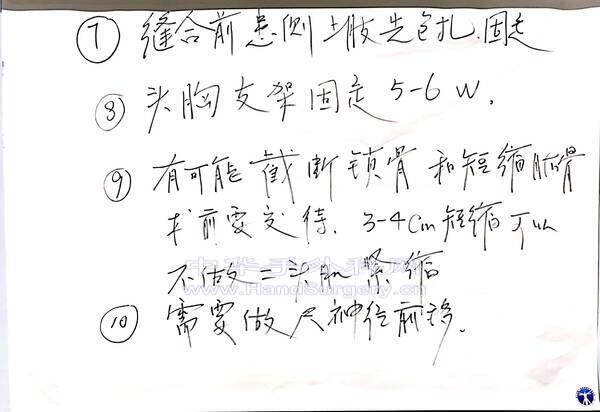 ⑦ 缝合前患侧上肢先包扎固定
⑧ 头胸支架固定5-6W.
⑨ 有可能截断锁骨和短缩肱骨
术前要交待. 3-4Cm短缩可以
不做三头肌紧缩
中华手外科网
www.HandSurgery.cn
⑩ 需要做尺神经前移.